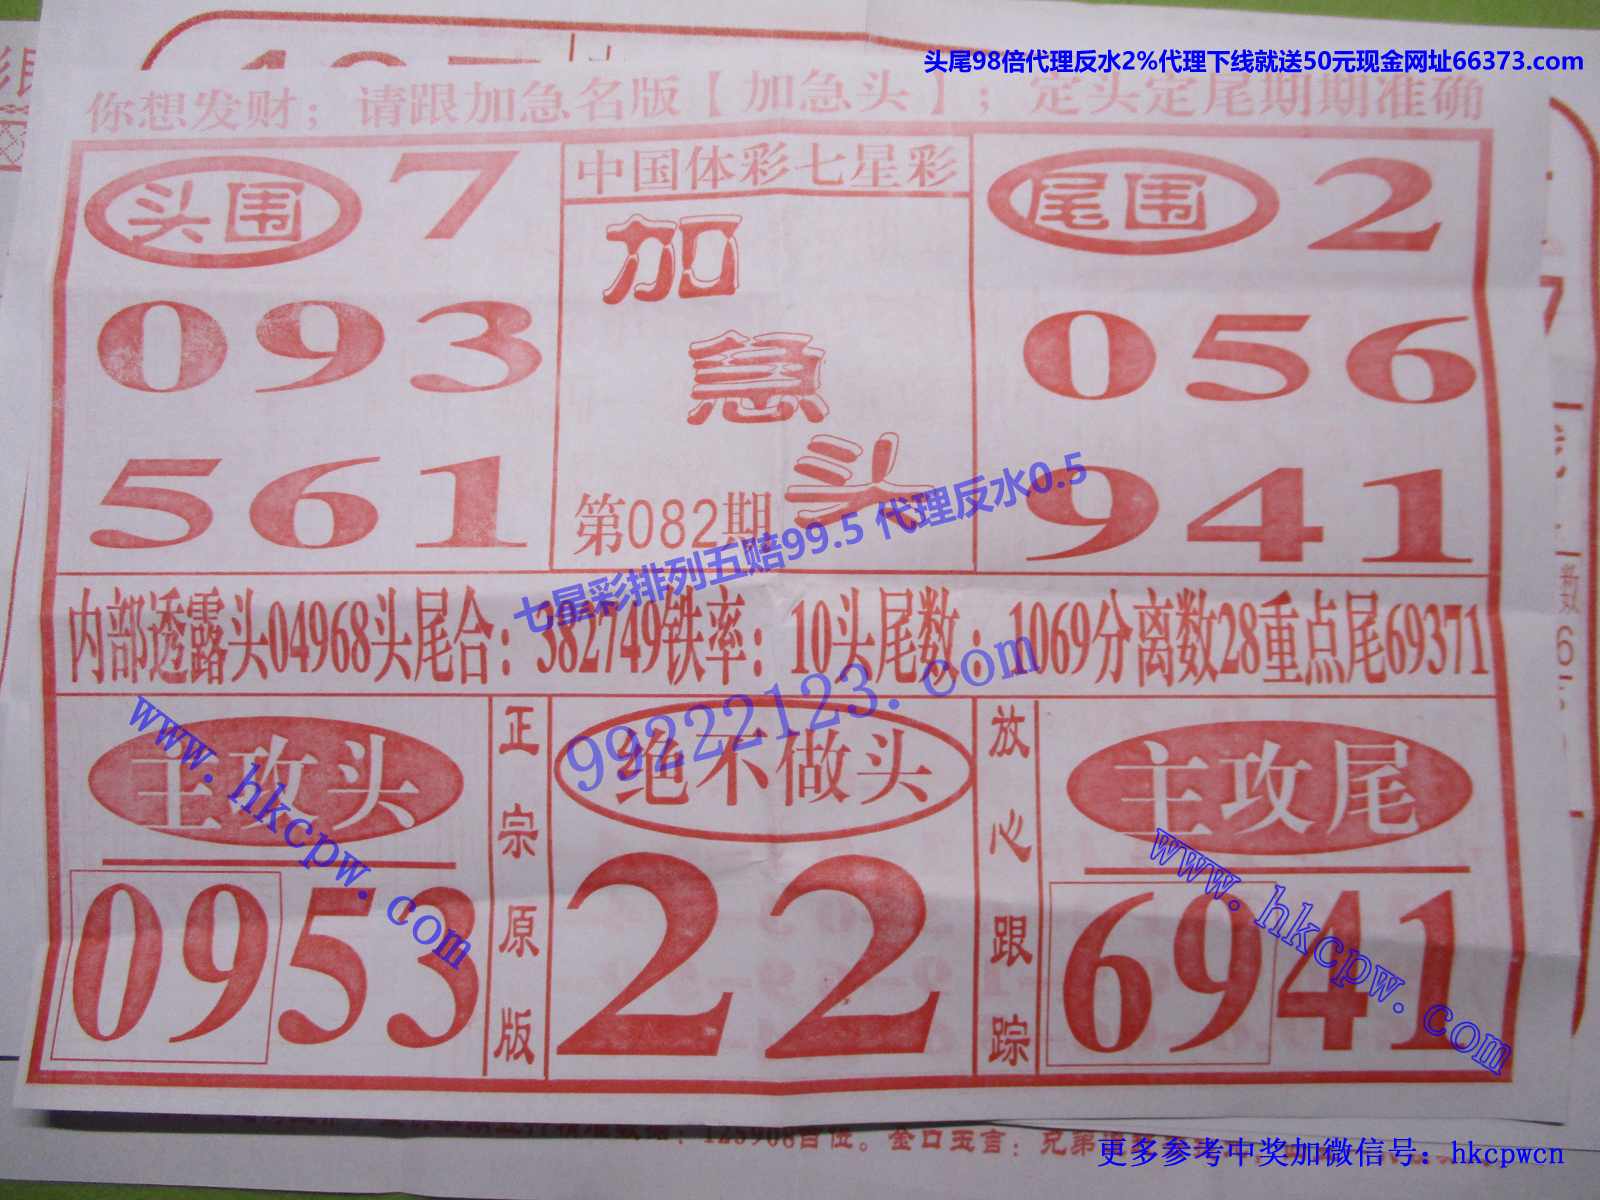 头尾98倍代理反水2%代理下线就送50元现金网址66373.com
你想发财；请跟加急名版【加急头】；定头定尾期期准确
头围 7
093
561
中国体彩七星彩
加
急
头
第082期
尾围 2
056
941
七星彩排列五赔99.5 代理反水0.5
内部透露头04968头尾合：382749铁率：10头尾数：1069分离数28重点尾69371
99222123.com
主攻头
0953
www.hkcpw.com
正宗原版
绝不做头
22
放心跟踪
主攻尾
6941
www.hkcpw.com
金口玉言：兄弟
更多参考中奖加微信号：hkcpwcn